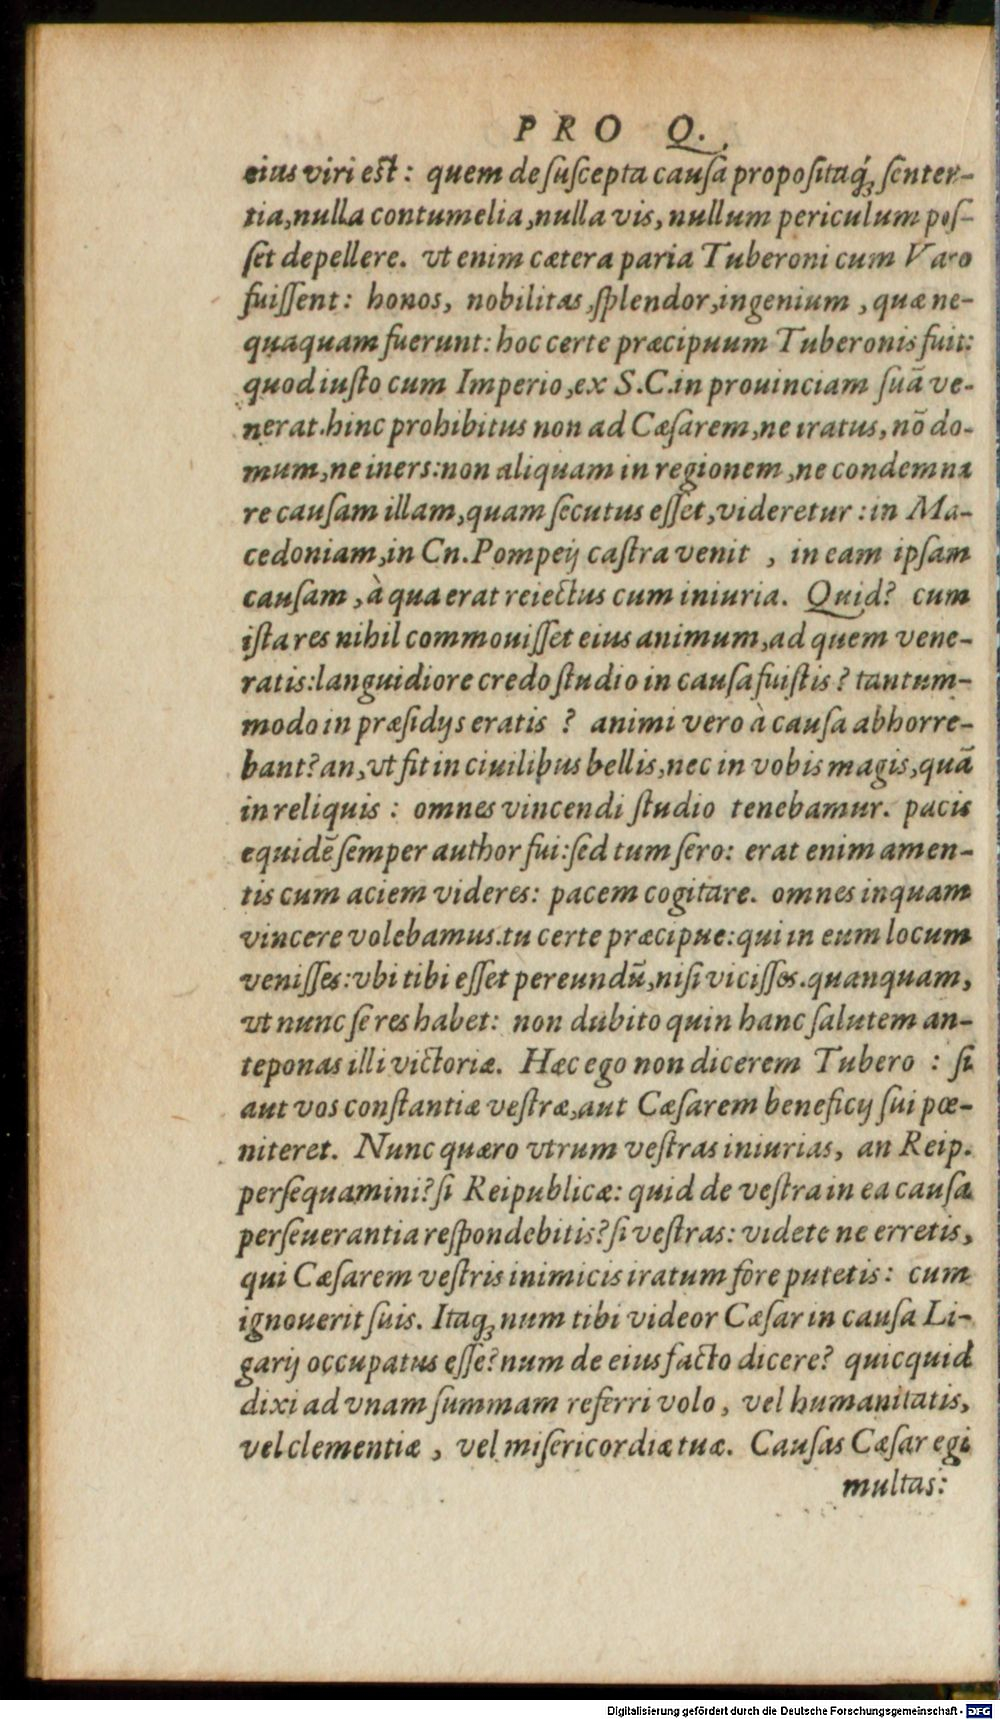 PRO Q.
eius viri est: quem de suscepta causa propositaq́; senten-
tia, nulla contumelia, nulla vis, nullum periculum pos-
set depellere. vt enim cætera paria Tuberoni cum Varo
fuissent: honos, nobilitas, splendor, ingenium, quæ ne-
quaquam fuerunt: hoc certe præcipuum Tuberonis fuit:
quod iusto cum Imperio, ex S.C. in prouinciam suā ve-
nerat. hinc prohibitus non ad Cæsarem, ne iratus, nō do-
mum, ne iners: non aliquam in regionem, ne condemna
re causam illam, quam secutus esset, videretur: in Ma-
cedoniam, in Cn. Pompeij castra venit , in eam ipsam
causam, à qua erat reiectus cum iniuria. Quid? cum
ista res nihil commouisset eius animum, ad quem vene-
ratis: languidiore credo studio in causa fuistis? tantum-
modo in præsidijs eratis ? animi vero à causa abhorre-
bant? an, vt fit in ciuilibus bellis, nec in vobis magis, quā
in reliquis : omnes vincendi studio tenebamur. pacis
equidē semper author fui: sed tum sero: erat enim amen-
tis cum aciem videres: pacem cogitare. omnes inquam
vincere volebamus. tu certe præcipue: qui in eum locum
venisses: vbi tibi esset pereundū, nisi vicisses. quanquam,
vt nunc se res habet: non dubito quin hanc salutem an-
teponas illi victoriæ. Hæc ego non dicerem Tubero : si
aut vos constantiæ vestræ, aut Cæsarem beneficij sui pœ-
niteret. Nunc quæro vtrum vestras iniurias, an Reip.
persequamini? si Reipublicæ: quid de vestra in ea causa
perseuerantia respondebitis? si vestras: videte ne erretis,
qui Cæsarem vestris inimicis iratum fore putetis: cum
ignouerit suis. Itaq; num tibi videor Cæsar in causa Li-
garij occupatus esse? num de eius facto dicere? quicquid
dixi ad vnam summam referri volo, vel humanitatis,
vel clementiæ , vel misericordiæ tuæ. Causas Cæsar egi
multas:
Digitalisierung gefördert durch die Deutsche Forschungsgemeinschaft - DFG